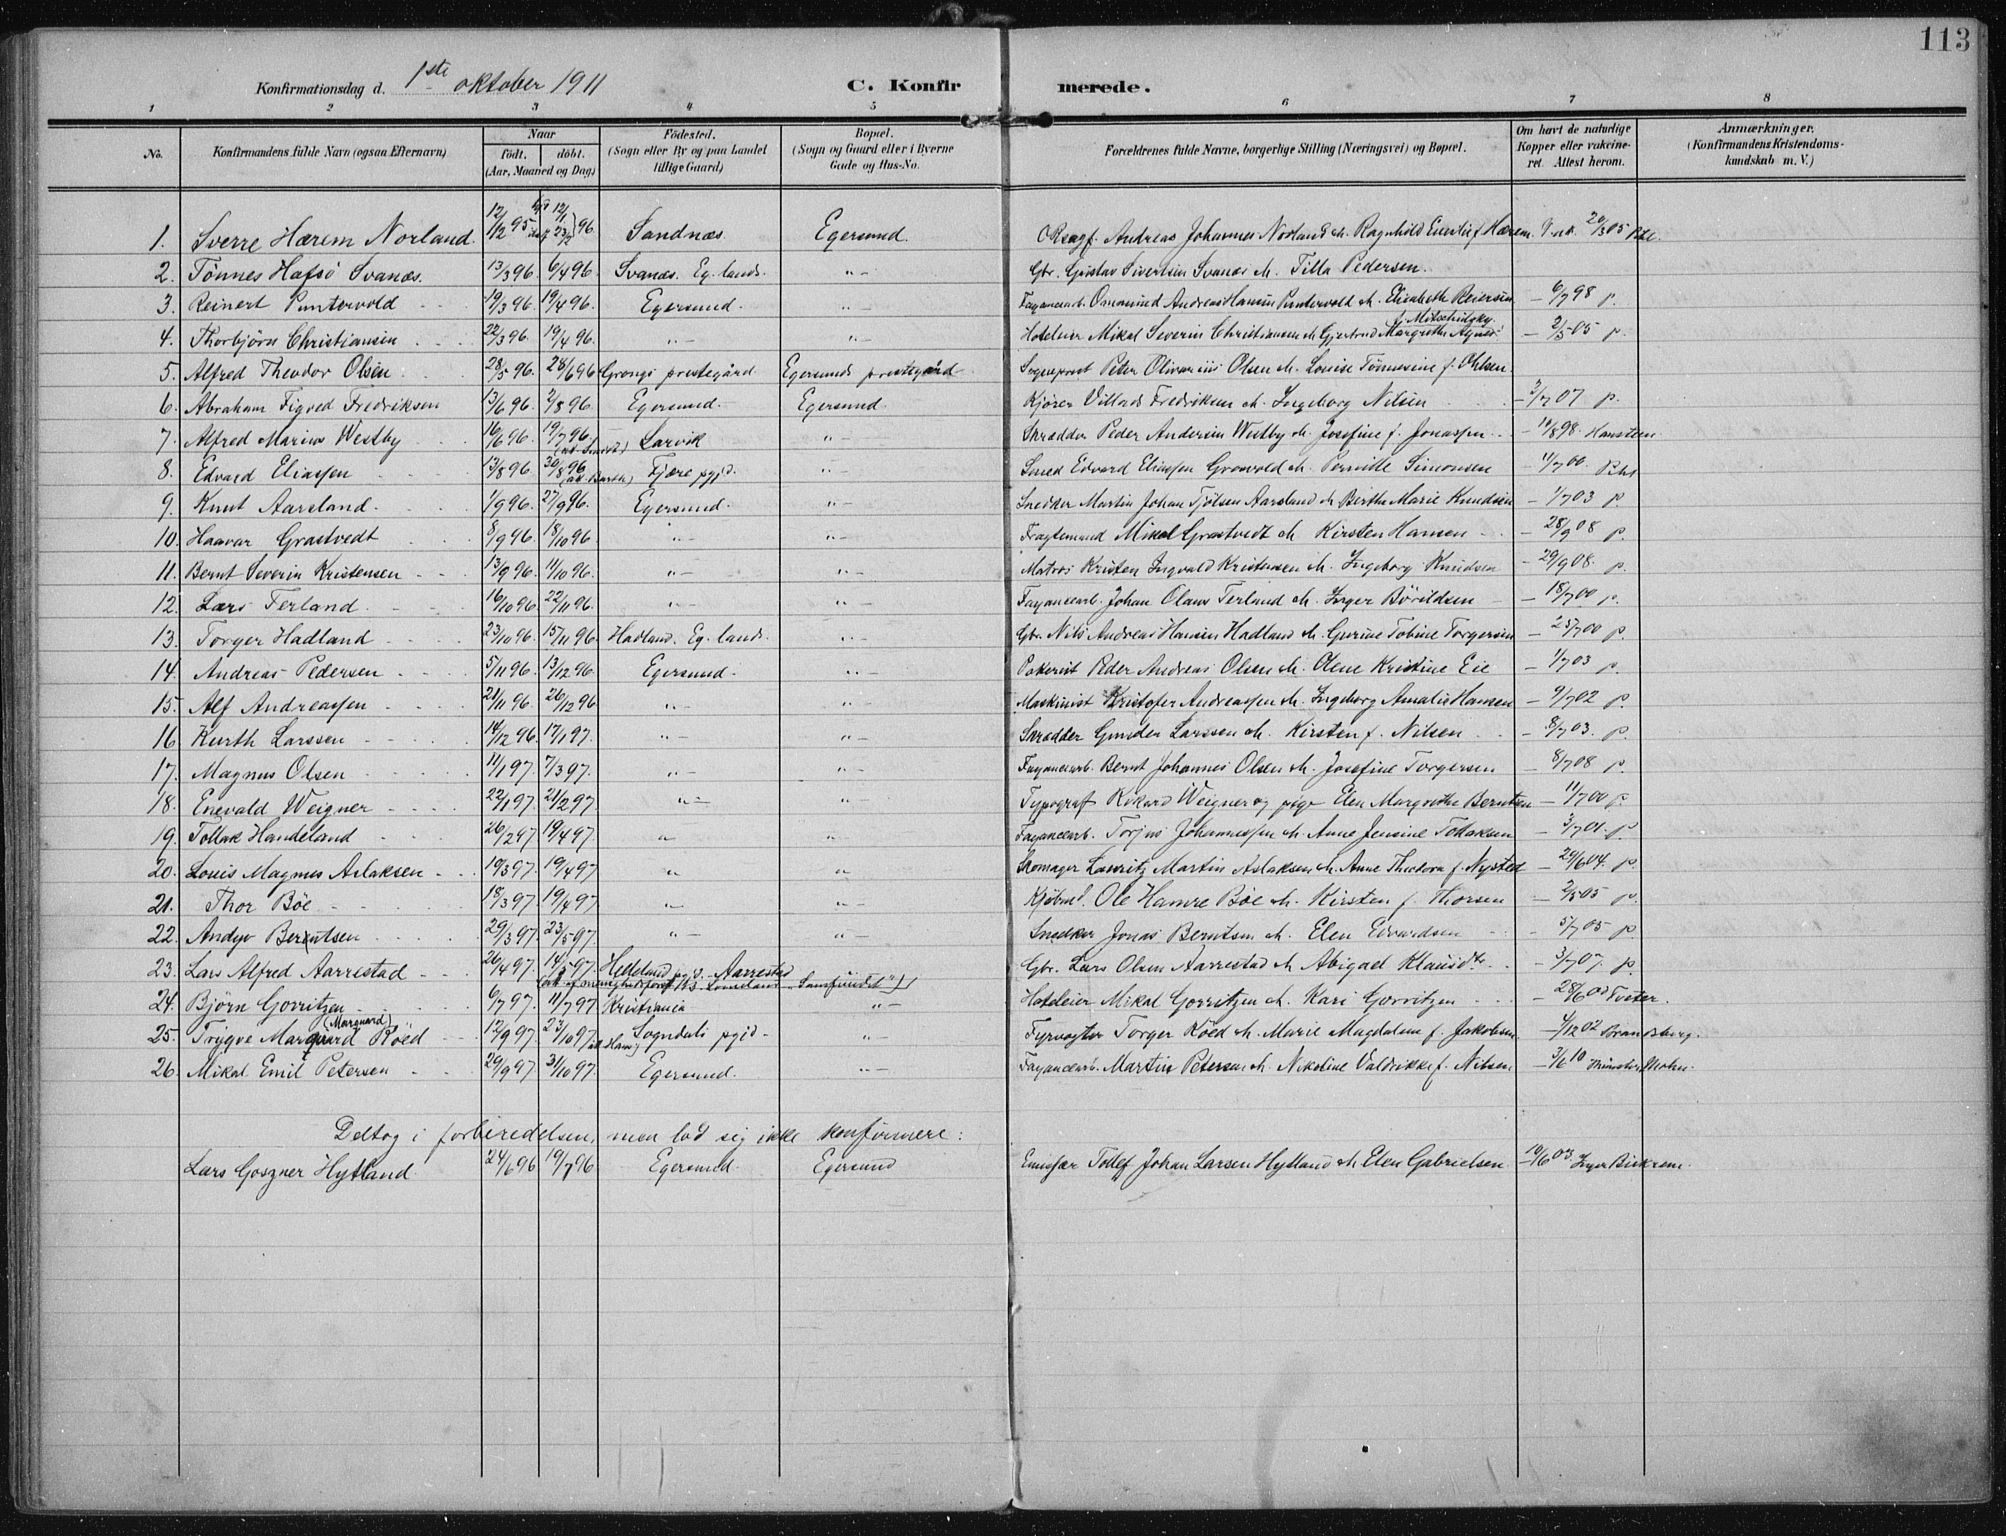 113
Konfirmationsdag d. 1ste oktober 1911 C. Konfirmerede.
1 2 3 4 5 6 7 8
No. Konfirmandens fulde Navn (ogsaa Efternavn) Naar født. døbt. (Aar, Maaned og Dag) Fødested. (Sogn eller By og paa Landet tillige Gaard) Bopæl. (Sogn og Gaard eller i Byerne Gade og Hus-No. Forældrenes fulde Navne, borgerlige Stilling (Næringsvei) og Bopæl. Om havt de naturlige Kopper eller vakcineret. Attest herom. Anmærkninger. (Konfirmandens Kristendomskundskab m. V.)
1. Sverre Hærem Norland 12/12 95 Sandnæs Egersund. Andreas Johannes Norland & Ragnhild f. Hærem 20/3 05
2. Tønnes Hafsö Svanæs. 13/3 96. 6/4 96 Svanæs. Eg. lands. " – Gbr. Gustav Sivertsen Svanæs & Tilla Pedersen.
3. Reinert Puntervold 19/3 96. 19/4 96. Egersund. " – Fayancearb. Osmund Andreas Hansen Puntervold & Elisabeth Reiersen – 6/7 98 p.
4. Thorbjörn Christiansen 22/3 96. 19/4 96. " – " – Hoteleier Mikal Severin Christiansen & Gjertrud Margrethe Agnes f. Mitschidzky – 2/5 05 p.
5. Alfred Theodor Olsen 28/5 96. 28/6 96 Grongs prestegård Egersunds prestegård Sogneprest Peter Olivarius Olsen & Louise Tönnesine f. Ohlsen
6. Abraham Figved Fredriksen 13/6 96. 2/8 96. Egersund. Egersund. Kjörer Villads Fredriksen & Ingeborg Nilsen – 3/7 07 p.
7. Alfred Marius Westby 16/6 96. 19/7 96. Larvik " – Skrædder Peder Andersen Westby & Josefine f. Jonassen – 14/8 98. Hansteen
8. Edvard Eliassen 13/8 96. 30/8 96. Fjære pgjd. " – Smed Edvard Eliassen Grosvold & Pernille Simonsen – 11/7 00
9. Knut Aarsland. 1/9 96. 27/9 96. Egersund. " – Snedker Martin Johan Tjölsen Aarsland & Berthe Marie Knudsen – 1/7 03 p.
10. Haavar Grastvedt 8/9 96. 18/10 96 " – " – Fragtemand Mikal Grastvedt & Kirsten Hansen – 28/9 08 p.
11. Bernt Severin Kristensen 13/9 96. 11/10 96. " – " – Matros Kristen Ingvald Kristensen & Ingeborg Knudsen – 29/9 08. p.
12. Lars Terland. 16/10 96. 22/11 96. " – " – Fayancearb. Johan Olaus Terland & Inger Bövildsen – 18/7 00 p.
13. Torger Hadland 23/10 96. 15/11 96 Hadland. Eg. lands. " – Gbr. Nils Andreas Hansen Hadland & Gurine Tobine Torgersen – 25/7 00 p.
14. Andreas Pedersen 5/11 96. 13/12 96. Egersund. " – Peder Andreas Olsen & Olene Kristine Eie – 1/7 03 p.
15. Alf Andreassen 21/11 96. 26/12 96 " – " – Maskinist Kristofer Andreassen & Ingeborg Amalie Hansen – 9/7 02 p
16 Kurth Larssen 14/12 96. 17/1 97. " – " – Skrædder Gunder Larssen & Kirsten f. Nilsen – 8/7 03. p.
17. Magnus Olsen 11/1 97. 7/3 97. " – " – Fayancearb. Bernt Johannes Olsen & Josefine Torgersen – 8/7 08 p.
18. Enevald Weigner 22/1 97. 21/2 97. " – " – Typograf Rikard Weigner og pige Elen Margrethe Berntsen – 11/7 00 p.
19. Tollak Handeland 26/2 97. 19/4 97. " " – Fayancearb. Torjus Johannessen & Anne Jensine Tollaksen – 3/7 01. p
20. Louis Magnus Aslaksen 19/3 97. 19/4 97 " " Skomager Lauritz Martin Aslaksen & Anne Theodora f. Nysted – 29/6 04. p.
21. Thor Böe 18/3 97. 19/4 97. " – " – Kjøbmd. Ole Hamre Böe & Kirsten f. Thorsen – 2/5 05 p.
22. Andyo Berentsen 29/3 97. 23/5 97. " – " – Snedker Jonas Berntsen & Elen Edvardsen – 5/7 05 p.
23. Lars Alfred Aarrestad 26/4 97. 14/5 97. Helleland pgjd. Aarrestad Gbr. Lars Olsen Aarrestad & Abigael Klausdtr. – 3/7 07. p.
"Samfundet")
24. Björn Gorritzen 6/7 97. 11/7 97 Kristiania " – Hoteleier Mikal Gorritzen & Kari Gorritzen – 28/6 03 Tveter.
25. Trygve Marquard (Marquard) Röed 12/9 97. 23/10 97 Sogndals pgjd. " – Fyrvogter Torger Röed & Marie Magdalene f. Jakobsen – 4/12 02 Brandsberg.
26. Mikal Emil Petersen 29/9 97 31/10 97. Egersund. " – Fayancearb. Martin Petersen & Nikoline Valdrikke f. Nilsen – 3/6 10
Deltog i forberedelsen, men lod sig ikke konfirmere:
Lars Goszner Hytland 24/6 96 19/7 96. Egersund. Egersund Emissær Tollef Johan Larsen Hytland & Elen Gabrielsen 19/6 03.